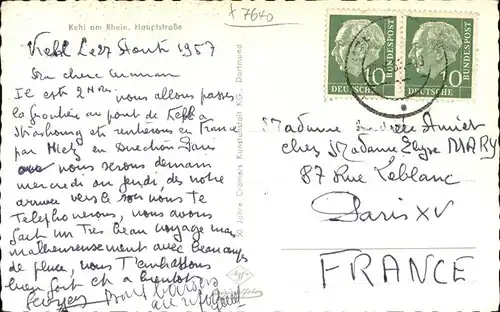 Kehl am Rhein, Hauptstraße
+ 7640
Kehl Le 27 Août 1957
chère maman
Il est 2 Hres nous allons passer
la frontière au pont de Kehl à
Strasbourg et rentrerons en France
par Metz en Direction Paris
nous serons demain
mercredi ou jeudi, dès notre
arrivée vers le soir nous te
Telephonerons, nous avons
fait un Très beau voyage mais
malheureusement avec beaucoup
de pluie, nous T'embrassons
bien fort et à bientôt
50 Jahre Cramers Kunstanstalt KG., Dortmund
DEUTSCHE
BUNDESPOST
10
DEUTSCHE
BUNDESPOST
10
Madame Amiet
chez Madame Elyse MARY
87 Rue Leblanc
Paris XV
FRANCE